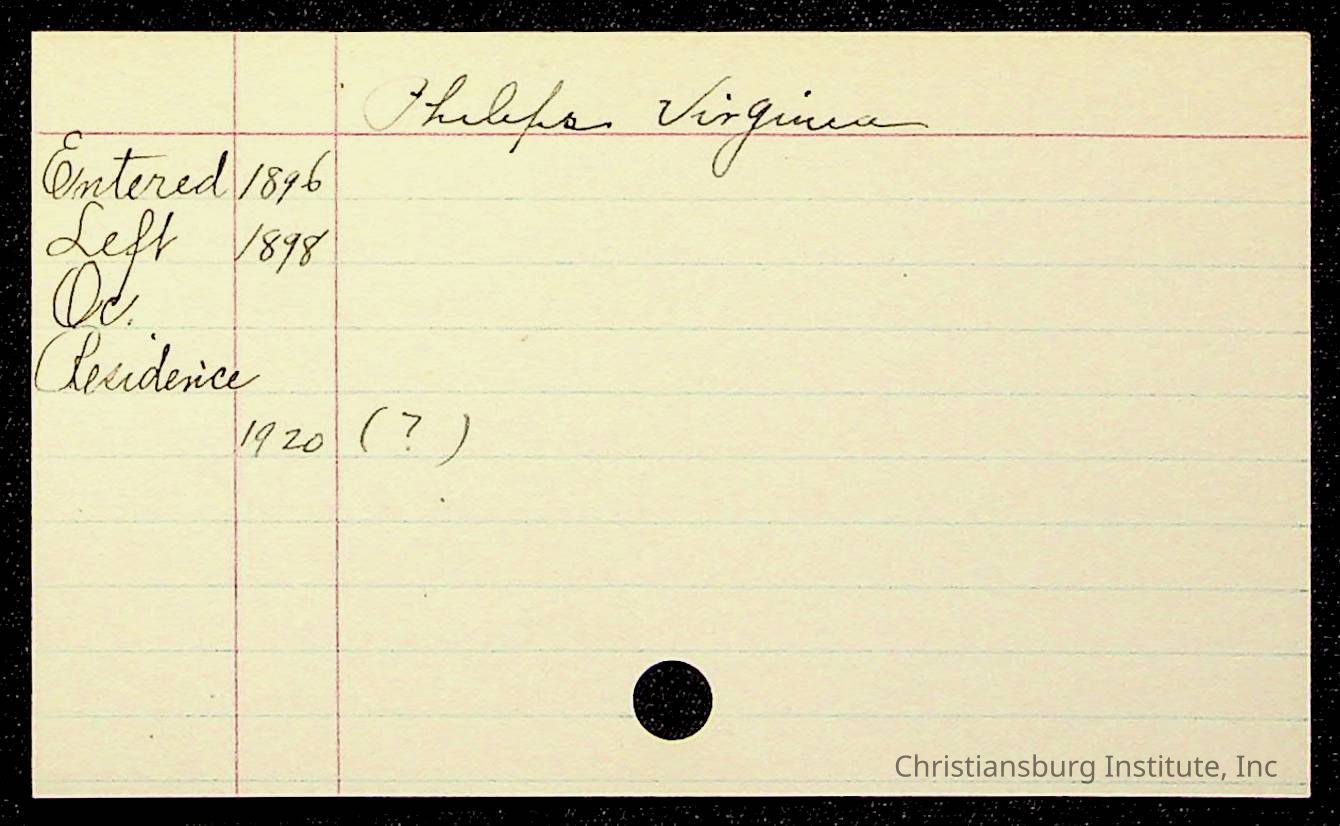 Phelps Virginia
Entered 1896
Left 1898
Oc.
Residence
1920 ( ? )
Christiansburg Institute, Inc